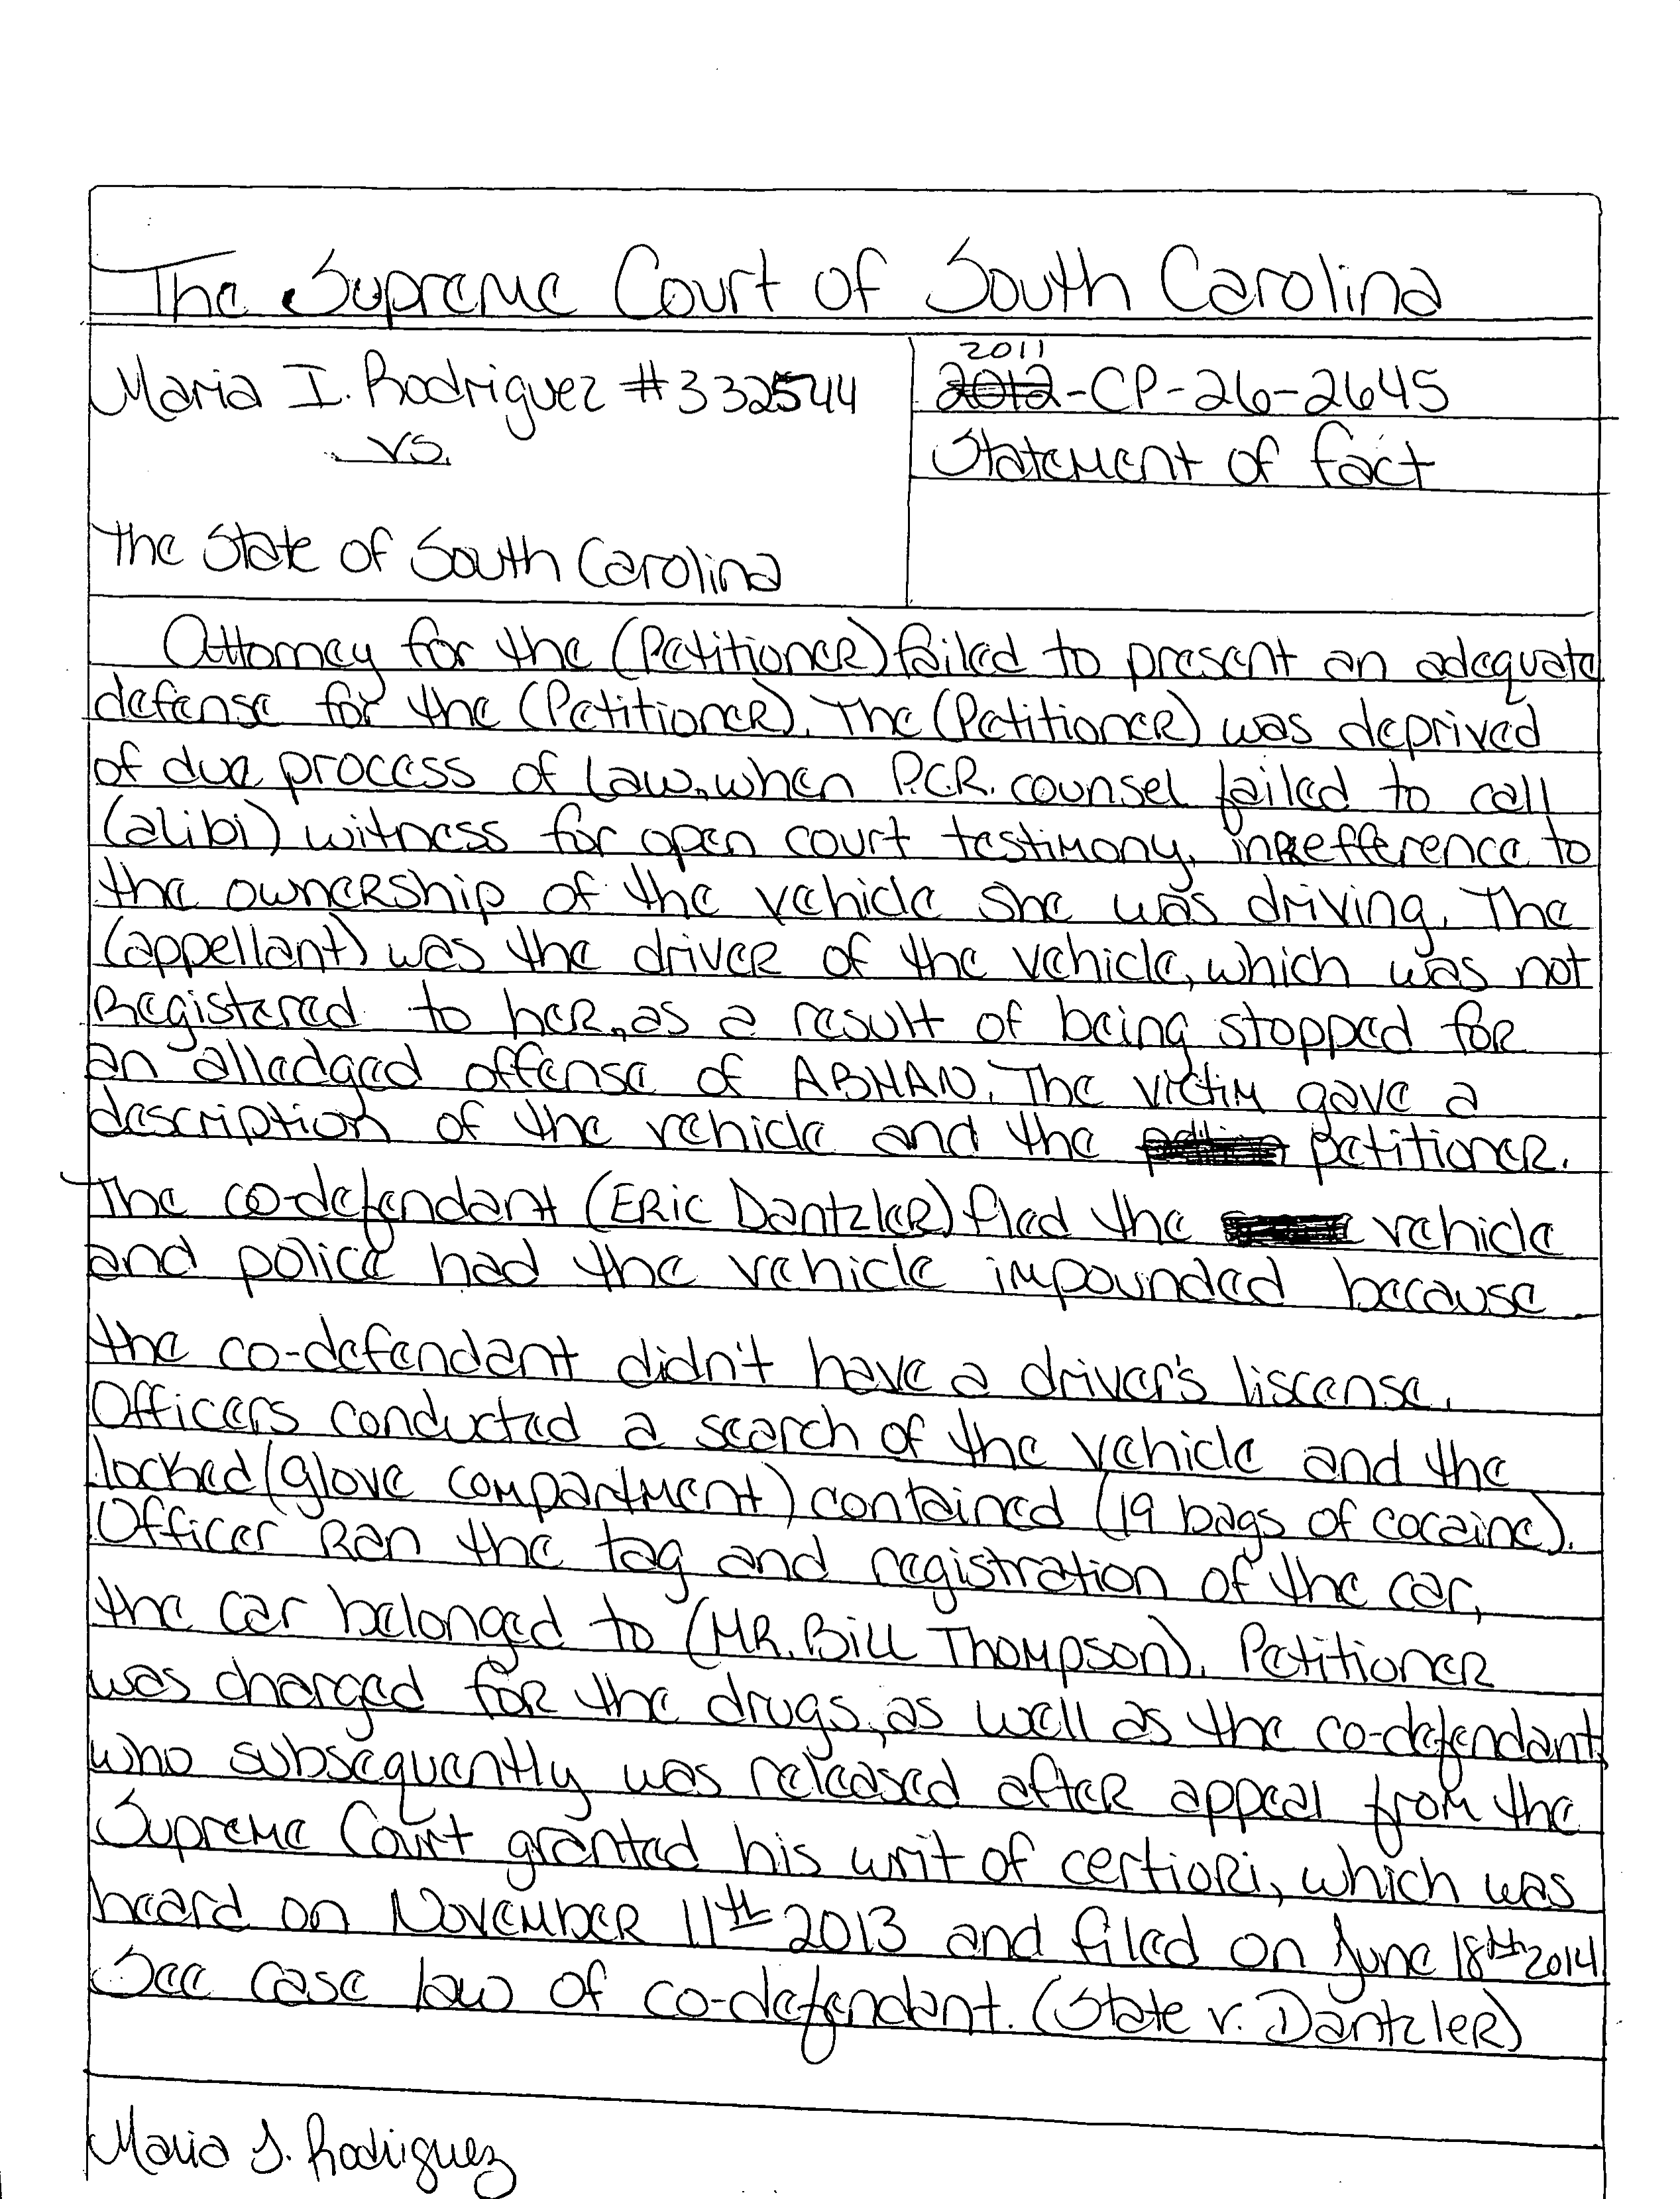 The Supreme Court of South Carolina
Maria I. Rodriguez #332544
vs.
The State of South Carolina
2011
2012-CP-26-2645
Statement of fact
Attorney for the (Petitioner) failed to present an adequate
defense for the (Petitioner). The (Petitioner) was deprived
of due process of law, when P.C.R. counsel failed to call
(alibi) witness for open court testimony, in refference to
the ownership of the vehicle she was driving. The
(appellant) was the driver of the vehicle, which was not
Registered to her, as a result of being stopped for
an alledged offense of ABHAN. The victim gave a
description of the vehicle and the petitioner.
The co-defendant (Eric Dantzler) fled the vehicle
and police had the vehicle impounded because
the co-defendant didn't have a driver's liscense.
Officers conducted a search of the vehicle and the
locked (glove compartment) contained (19 bags of cocaine).
Officer Ran the tag and registration of the car,
the car belonged to (MR. Bill Thompson). Petitioner
was charged for the drugs, as well as the co-defendant,
who subsequently was released after appeal from the
Supreme Court granted his writ of certiori, which was
heard on November 11th 2013 and filed on June 18th 2014.
See case law of co-defendant. (State v. Dantzler)
Maria I. Rodriguez